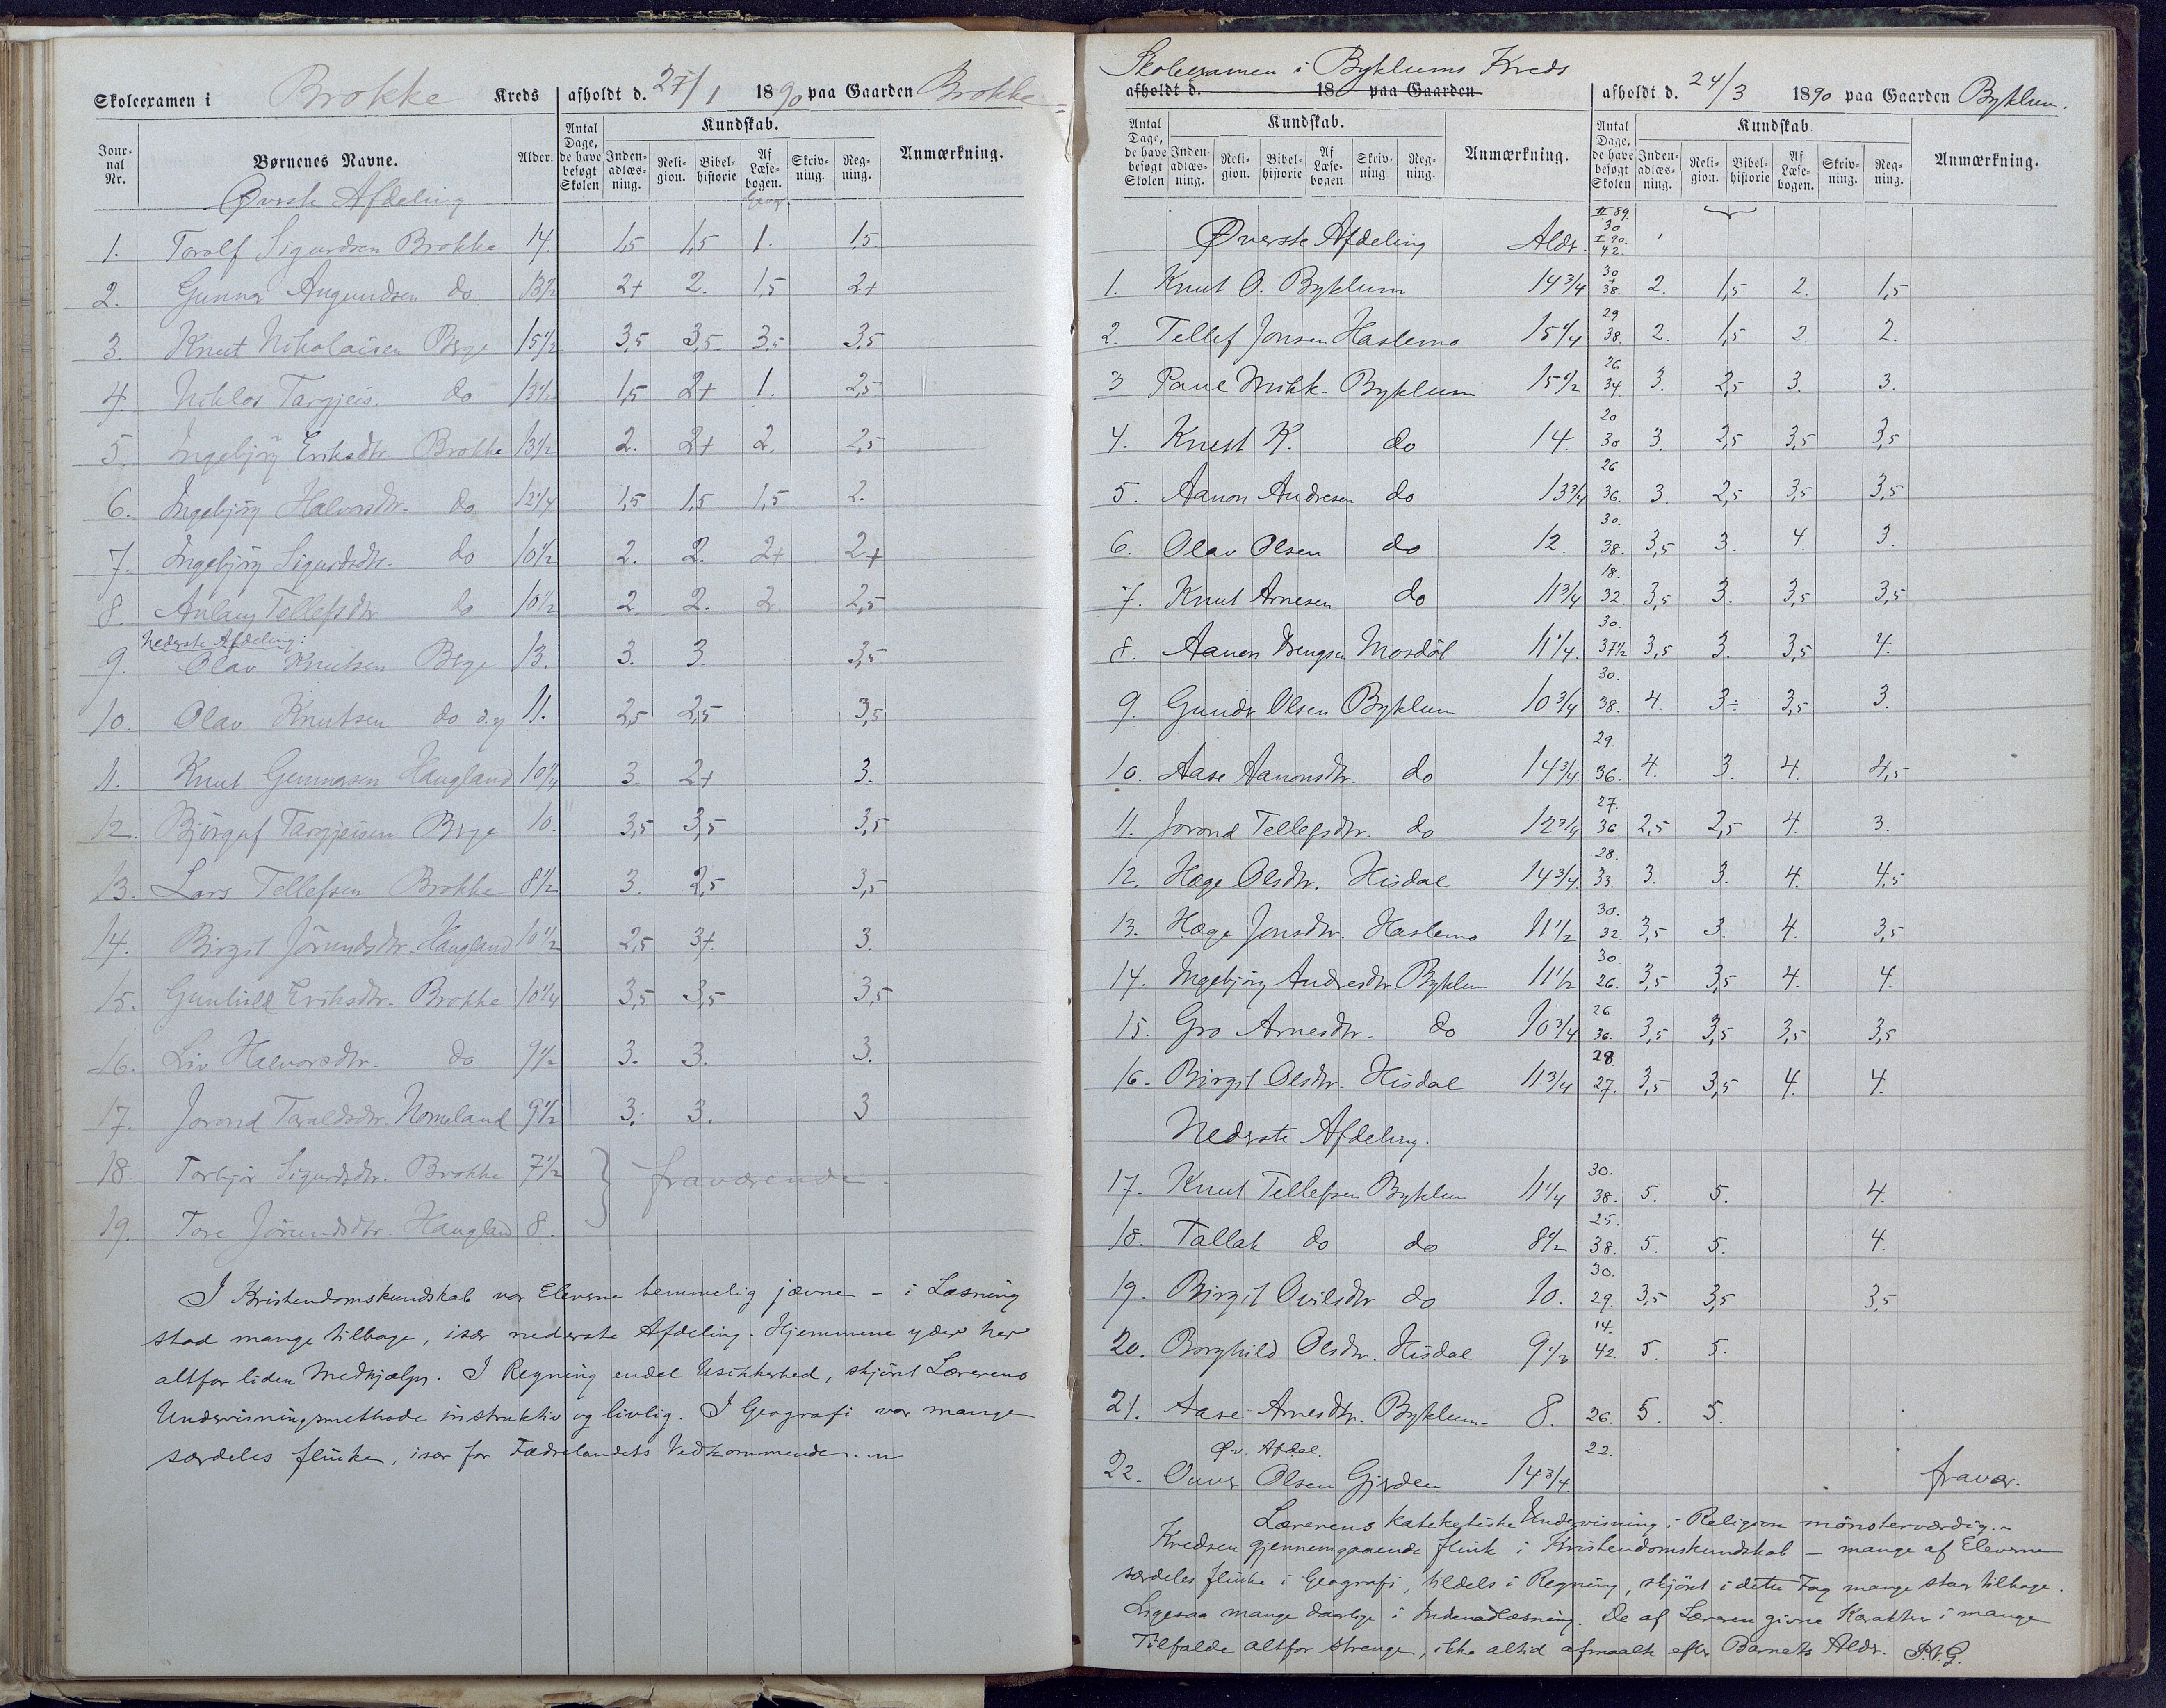 Skoleexamen i Brokke Kreds afholdt d. 27/1 1890 paa Gaarden Brokke
Jour-nal Nr. Børnenes Navne. Alder. Antal Dage, de have besøgt Skolen Kundskab. Inden-adlæs-ning. Reli-gion. Bibel-historie Af Læse-bogen. Skriv-ning. Reg-ning. Anmærkning.
Øverste Afdeling Geogr.
1. Torolf Sigurdsen Brokke 14. 1,5 1,5 1. 1,5
2. Gunnar Augundsen do 13 1/2 2+ 2. 1,5 2+
3. Knut Nikolaisen Berge 15 1/2 3,5 3,5 3,5 3,5
4. Niklos Targjeis. do 13 1/2 1,5 2+ 1. 2,5
5. Ingebjörg Eriksdtr. Brokke 13 1/2 2. 2+ 2. 2,5
6. Ingebjörg Halvorsdtr. do 12 1/4 1,5 1,5 1,5 2.
7. Ingebjörg Sigurdsdtr. do 10 1/2 2. 2. 2+ 2+
8. Anlaug Tellefsdtr do 10 1/2 2 2. 2. 2,5
Nederste Afdeling:
9. Olav Knutsen Berge 13. 3. 3. 3,5
10. Olav Knutsen do d.y 11. 2,5 2,5 3,5
11. Knut Gunnarsen Haugland 10 1/4 3. 2+ 3.
12. Björguf Targjeisen Berge 10. 3,5 3,5 3,5
13. Lars Tellefsen Brokke 8 1/2 3. 2,5 3,5
14. Birgit Jörundsdtr. Haugland 10 1/2 2,5 3+. 3.
15. Gunhild Eriksdtr. Brokke 10 1/4 3,5 3,5 3,5
16. Liv Halvorsdtr. do 9 1/2 3. 3. 3.
17. Jorond Taraldsdtr. Nomeland 9 1/2 3. 3. 3
18. Torbjör Sigurdsdtr. Brokke 7 1/2 } fraværende.
19. Tore Jörundsdtr. Haugland 8.
I Kristendomskundskab var Eleverne temmelig jævne – i Læsning
stod mange tilbage, især nederste Afdeling. Hjemmene yder her
altfor liden Medhjælp. I Regning endel Usikkerhed, skjönt Lærerens
Undervisningsmethode instruktiv og livlig. I Geografi var mange
særdeles flinke, især for Fædrelandets Vedkommende.
Skoleexamen i Byklums Kreds
afholdt d. 18 paa Gaarden afholdt d. 24/3 1890 paa Gaarden Byklum.
Antal Dage, de have besøgt Skolen Kundskab. Inden-adlæs-ning. Reli-gion. Bibel-historie Af Læse-bogen. Skriv-ning Reg-ning. Anmærkning. Antal Dage, de have besøgt Skolen Kundskab Inden-adlæs-ning. Reli-gion. Bibel-historie Af Læse-bogen. Skriv-ning. Reg-ning. Anmærkning.
Øverste Afdeling Aldr. II 89. 30 I 90. 42.
1. Knut O. Byklum 14 3/4 30 + 38. 2. 1,5 2. 1,5
2. Tellef Jonsen Haslemo 15 1/4 29 38. 2. 1,5 2. 2.
3 Paul Mikk. Byklum 15 1/2 26 34. 3. 2,5 3. 3.
4. Knut K. do 14. 20 30 3. 2,5 3,5 3,5
5. Aanon Andresen do 13 3/4 26 36. 3. 2,5 3,5 3,5
6. Olav Olsen do 12. 30. 38. 3,5 3. 4. 3.
7. Knut Arnesen do 11 3/4 18. 32. 3,5 3. 3,5 3,5
8. Aanon Drengsn Mosdöl 11 1/4. 30. 37 1/2 3,5 3. 3,5 4.
9. Gundr Olsen Byklum 10 3/4 30. 38. 4. 3÷ 3,5 3.
10. Aase Aanonsdtr. do 14 3/4. 29. 36. 4. 3. 4. 4,5
11. Jorond Tellefsdtr. do 12 3/4 27. 36. 2,5 2,5 4. 3.
12. Hæge Olsdtr. Hisdal 14 3/4. 28. 33. 3. 3. 4. 4,5
13. Hæge Jonsdtr. Haslemo 11 1/2 30. 32. 3,5 3. 4. 3,5
14. Ingebjörg Andresdtr Byklum 11 1/2 30 26. 3,5 3,5 4. 4.
15. Gro Arnesdtr. do 10 3/4 26. 36. 3,5 3,5 3,5 3,5
16. Birgit Olsdtr. Hisdal 11 3/4 28. 27. 3,5 3,5 4. 4.
Nederste Afdeling.
17. Knut Tellefsen Byklum 11 1/4 30. 38. 5. 5. 4.
18. Tallak do do 8 1/2 25. 38. 5. 5. 4.
19. Birgit dtr do 10. 30. 29. 3,5 3,5 3,5
20. Borghild Olsdtr. Hisdal 9 1/2 14. 42. 5. 5.
21. Aase Arnesdtr. Byklum. 8. 26. 5. 5.
Øv. Afdel. 22.
22. Olsen Gjerden 14 3/4. fravær.
Lærerens kateketiske Undervisning i Religion mönsterværdig.
Kredsen gjennemgaaende flink i Kristendomskundskab – mange af Eleverne
særdeles flinke i Geografi, tildels i Regning, skjönt i dette Fag mange staar tilbage.
Ligesaa mange daarlige i Indenadlæsning. De af Læreren givne Karakter i mange
Tilfælde altfor strenge, ikke altid afmaalt efter Barnets Aldr. P.V.G.